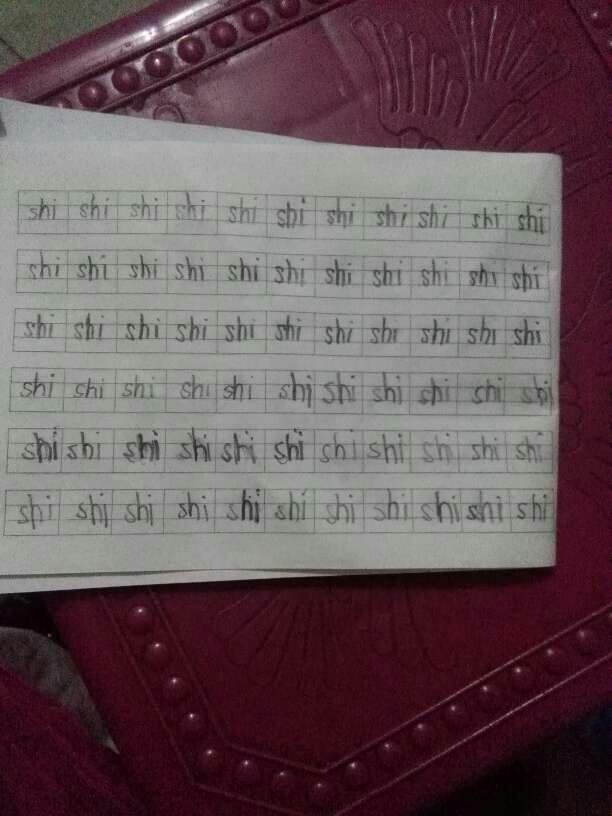 shi shi shi shi shi shi shi shi shi shi shi
shi shi shi shi shi shi shi shi shi shi shi
shi shi shi shi shi shi shi shi shi shi shi
shi shi shi shi shi shi shi shi shi shi shi
shi shi shi shi shi shi shi shi shi shi shi
shi shi shi shi shi shi shi shi shi shi shi